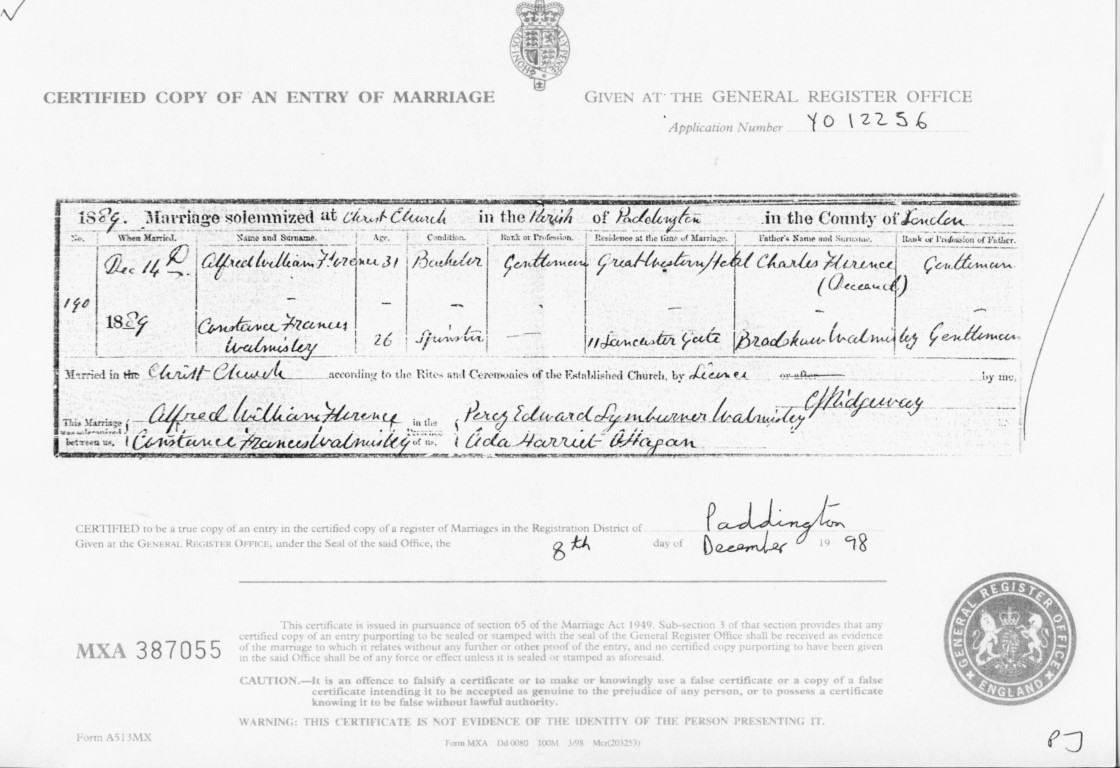 CERTIFIED COPY OF AN ENTRY OF MARRIAGE
GIVEN AT THE GENERAL REGISTER OFFICE
Application Number Y012256
1889. Marriage solemnized at Christ Church in the Parish of Paddington in the County of London
No. When Married. Name and Surname. Age. Condition. Rank or Profession. Residence at the time of Marriage. Father's Name and Surname. Rank or Profession of Father.
190 Dec 14th 1889
Alfred William Florence 31 Bachelor Gentleman Great Western Hotel Charles Florence (Deceased) Gentleman
Constance Frances Walmisley 26 Spinster — 11 Lancaster Gate Bradshaw Walmisley Gentleman
Married in the Christ Church according to the Rites and Ceremonies of the Established Church, by Licence or after by me,
CJ Ridgeway
This Marriage was solemnized between us, Alfred William Florence in the Presence of us, Percy Edward Symburner Walmisley
Constance Frances Walmisley Ada Harriet O'Hagan
CERTIFIED to be a true copy of an entry in the certified copy of a register of Marriages in the Registration District of Paddington
Given at the GENERAL REGISTER OFFICE, under the Seal of the said Office, the 8th day of December 19 98
MXA 387055
This certificate is issued in pursuance of section 65 of the Marriage Act 1949. Sub-section 3 of that section provides that any
certified copy of an entry purporting to be sealed or stamped with the seal of the General Register Office shall be received as evidence
of the marriage to which it relates without any further or other proof of the entry, and no certified copy purporting to have been given
in the said Office shall be of any force or effect unless it is sealed or stamped as aforesaid.
CAUTION.—It is an offence to falsify a certificate or to make or knowingly use a false certificate or a copy of a false
certificate intending it to be accepted as genuine to the prejudice of any person, or to possess a certificate
knowing it to be false without lawful authority.
WARNING: THIS CERTIFICATE IS NOT EVIDENCE OF THE IDENTITY OF THE PERSON PRESENTING IT.
GENERAL REGISTER OFFICE
ENGLAND
Form A513MX
Form MXA Dd 0080 100M 3/98 Mcr(203253)
PJ